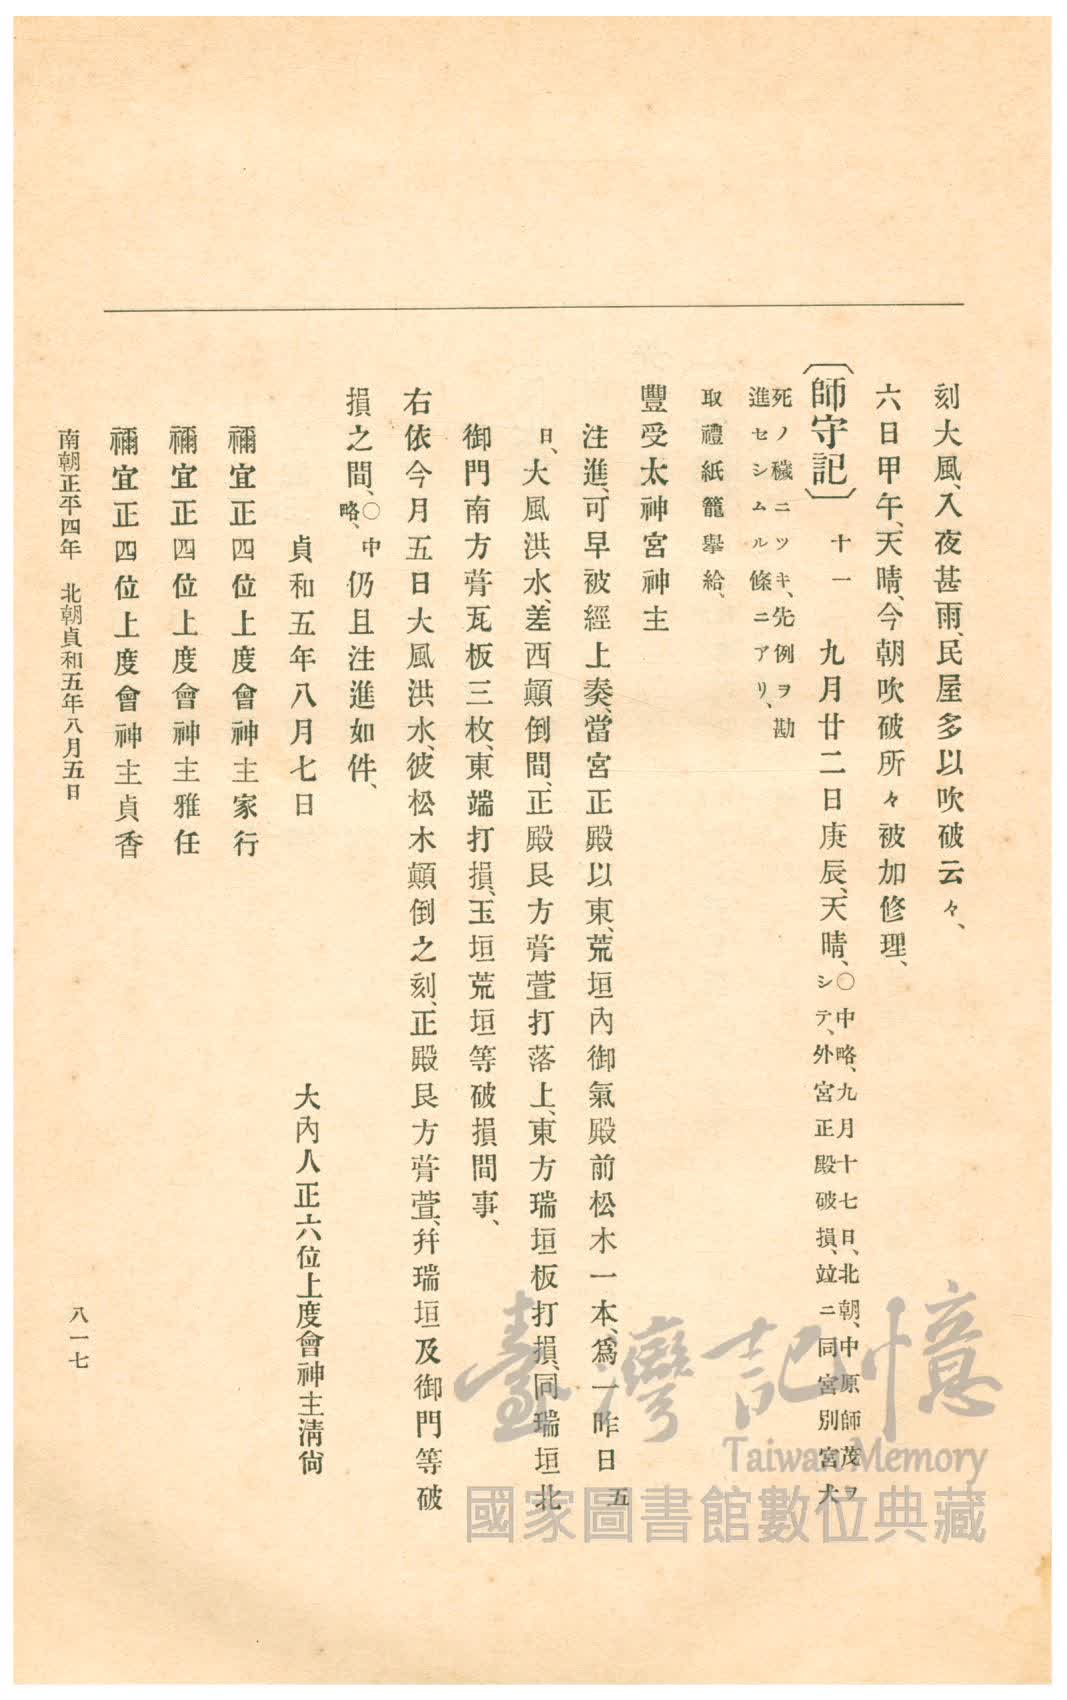 刻大風、入夜甚雨、民屋多以吹破云々、
六日甲午、天晴、今朝吹破所々被加修理、
〔師守記〕 十一 九月廿二日庚辰、天晴、○中略、九月十七日、北朝、中原師茂ヲ
シテ、外宮正殿破損、竝ニ同宮別宮犬
死ノ穢ニツキ、先例ヲ勘
進セシムル條ニアリ、
取禮紙籠擧給、
豐受太神宮神主
注進、可早被經上奏、當宮正殿以東、荒垣內御氣殿前松木一本、爲一昨日五
日、大風洪水、差西顚倒間、正殿艮方萱打落上、東方瑞垣板打損、同瑞垣北
御門南方瓦板三枚、東端打損、玉垣荒垣等破損間事、
右依今月五日大風洪水、彼松木顚倒之刻、正殿艮方萱、幷瑞垣及御門等破
損之間、○中略、仍且注進如件、
貞和五年八月七日
大內人正六位上度會神主淸尙
禰宜正四位上度會神主家行
禰宜正四位上度會神主雅任
禰宜正四位上度會神主貞香
南朝正平四年 北朝貞和五年八月五日
八一七
臺灣記憶
Taiwan Memory
國家圖書館數位典藏